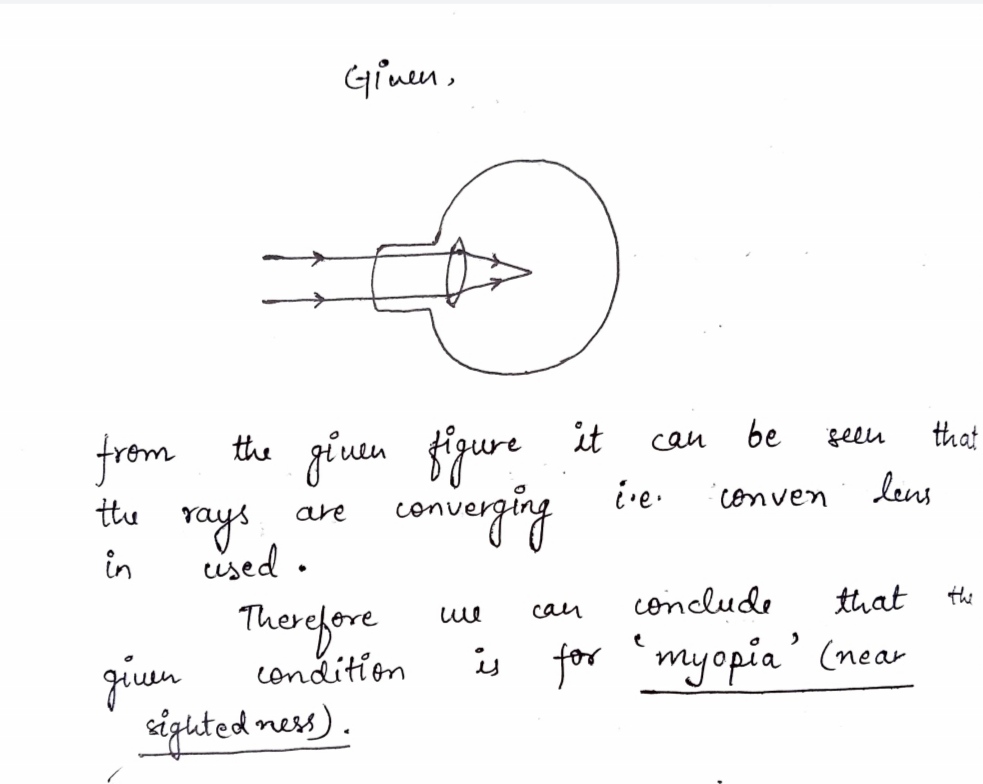 Given,
from the given figure it can be seen that
the rays are converging i.e. conven lens
in used.
Therefore we can conclude that the
given condition is for 'myopia' (near
sightedness).